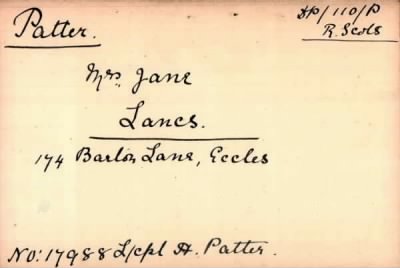 Patter.
DP/110/P
R. Scots
Mrs. Jane
Lancs.
174 Barton Lane, Eccles
No: 17988 L/cpl H. Patter.